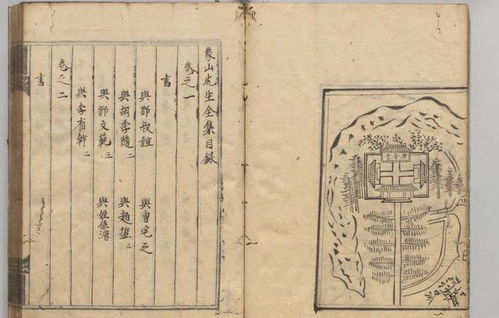 象山先生全集目録
卷之一
書
與邵叔誼 與曾宅之
與胡季隨 二 與趙監 二
與鄧文範 與姪孫濬
與李省幹 二
卷之二
書